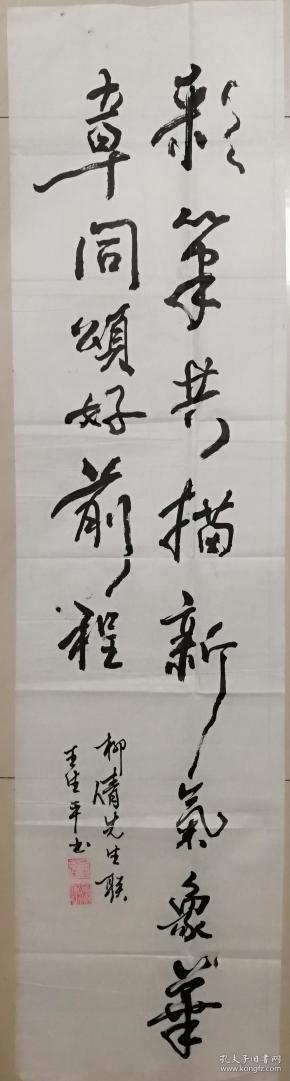 彩筆共描新氣象華
章同頌好前程
柳倩先生联
王生平书
孔夫子旧书网
www.kongfz.com